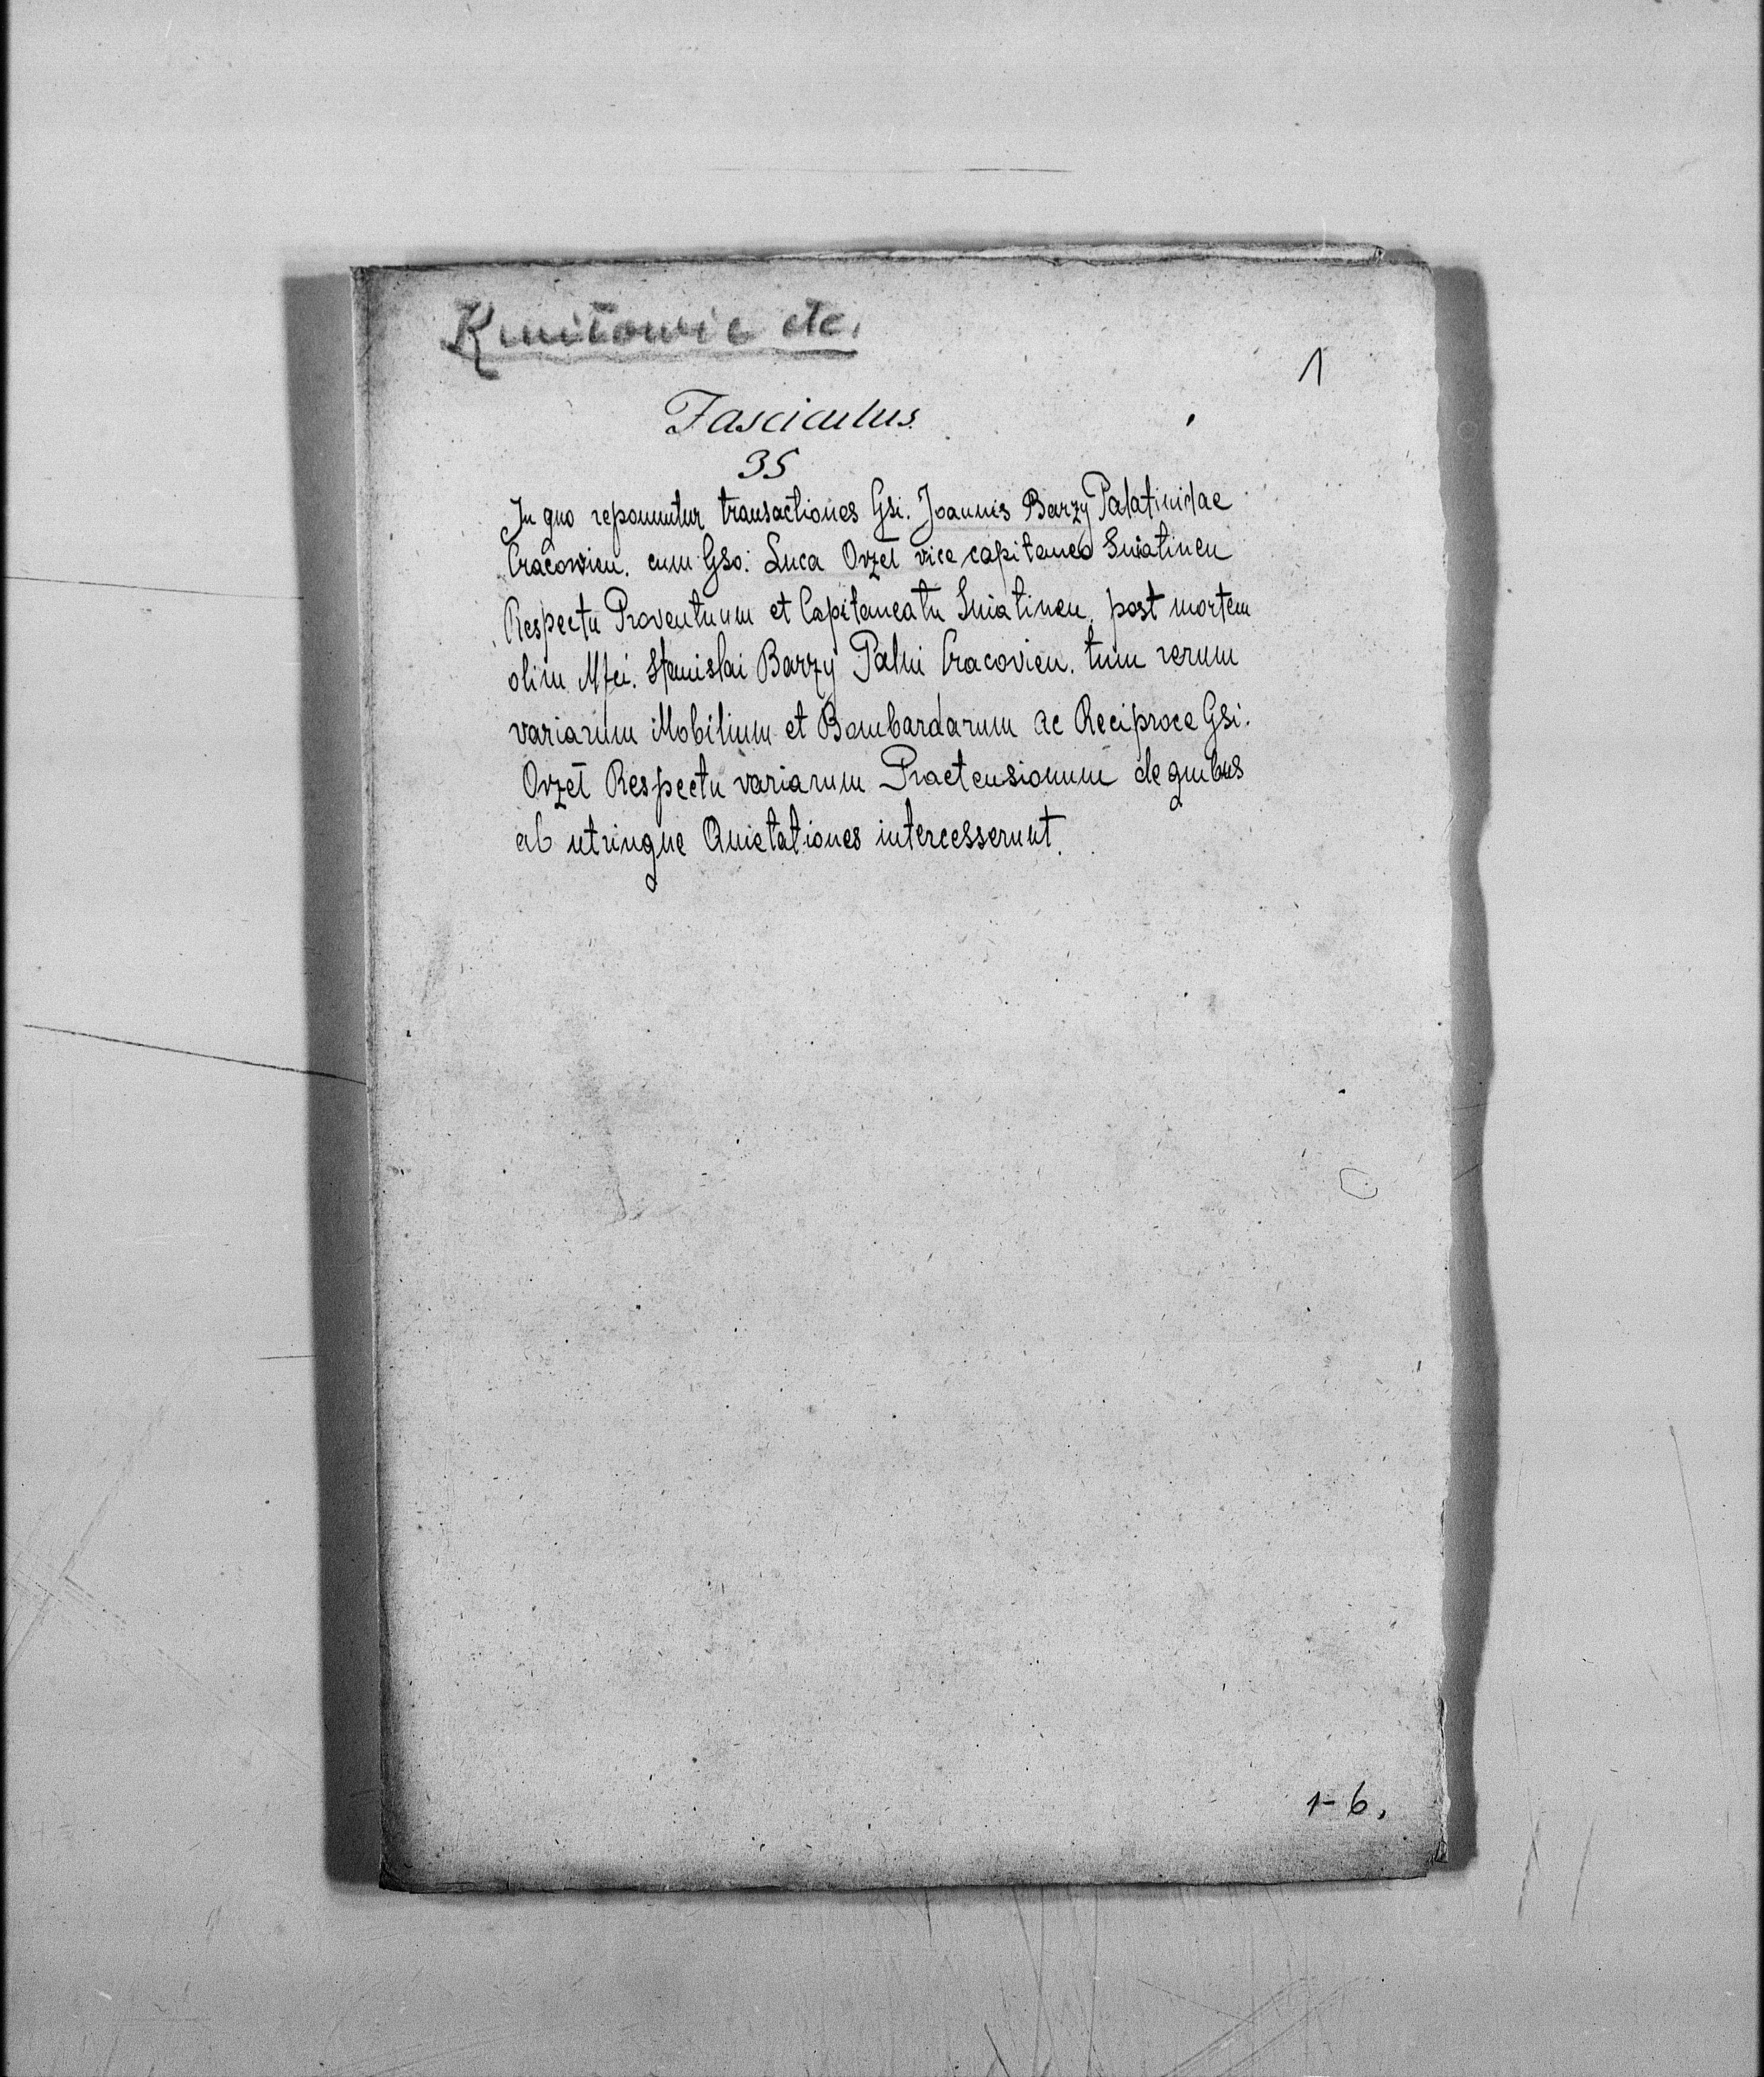 Kmitowie etc.
1
Fasciculus
35
In quo reponuntur transactiones Gsi. Joannis Barzy Palatinidae
Cracovien. cum Gso. Luca Orzet vice capitaneo Sniatinen
Respectu Proventuum et Capitaneatu Sniatinen. post mortem
olim Mfci. Stanislai Barzy Palni Cracovien. tum rerum
variarum Mobilium et Bombardarum ac Reciproce Gsi.
Orzet Respectu variarum Praetensionum de quibus
ab utrinque Quietationes intercesserunt.
1-6.